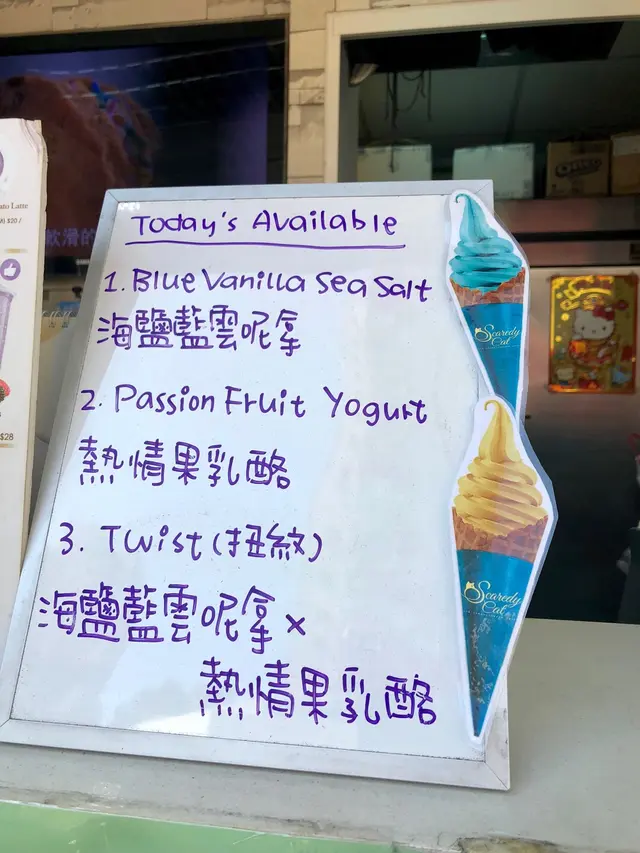 Today's Available
1. Blue Vanilla Sea Salt
海鹽藍雲呢拿
2. Passion Fruit Yogurt
熱情果乳酪
3. Twist (扭紋)
海鹽藍雲呢拿 x
熱情果乳酪
Scaredy
Cat
Scaredy
Cat
Latte
$20/
$28
飲滑的
OREO